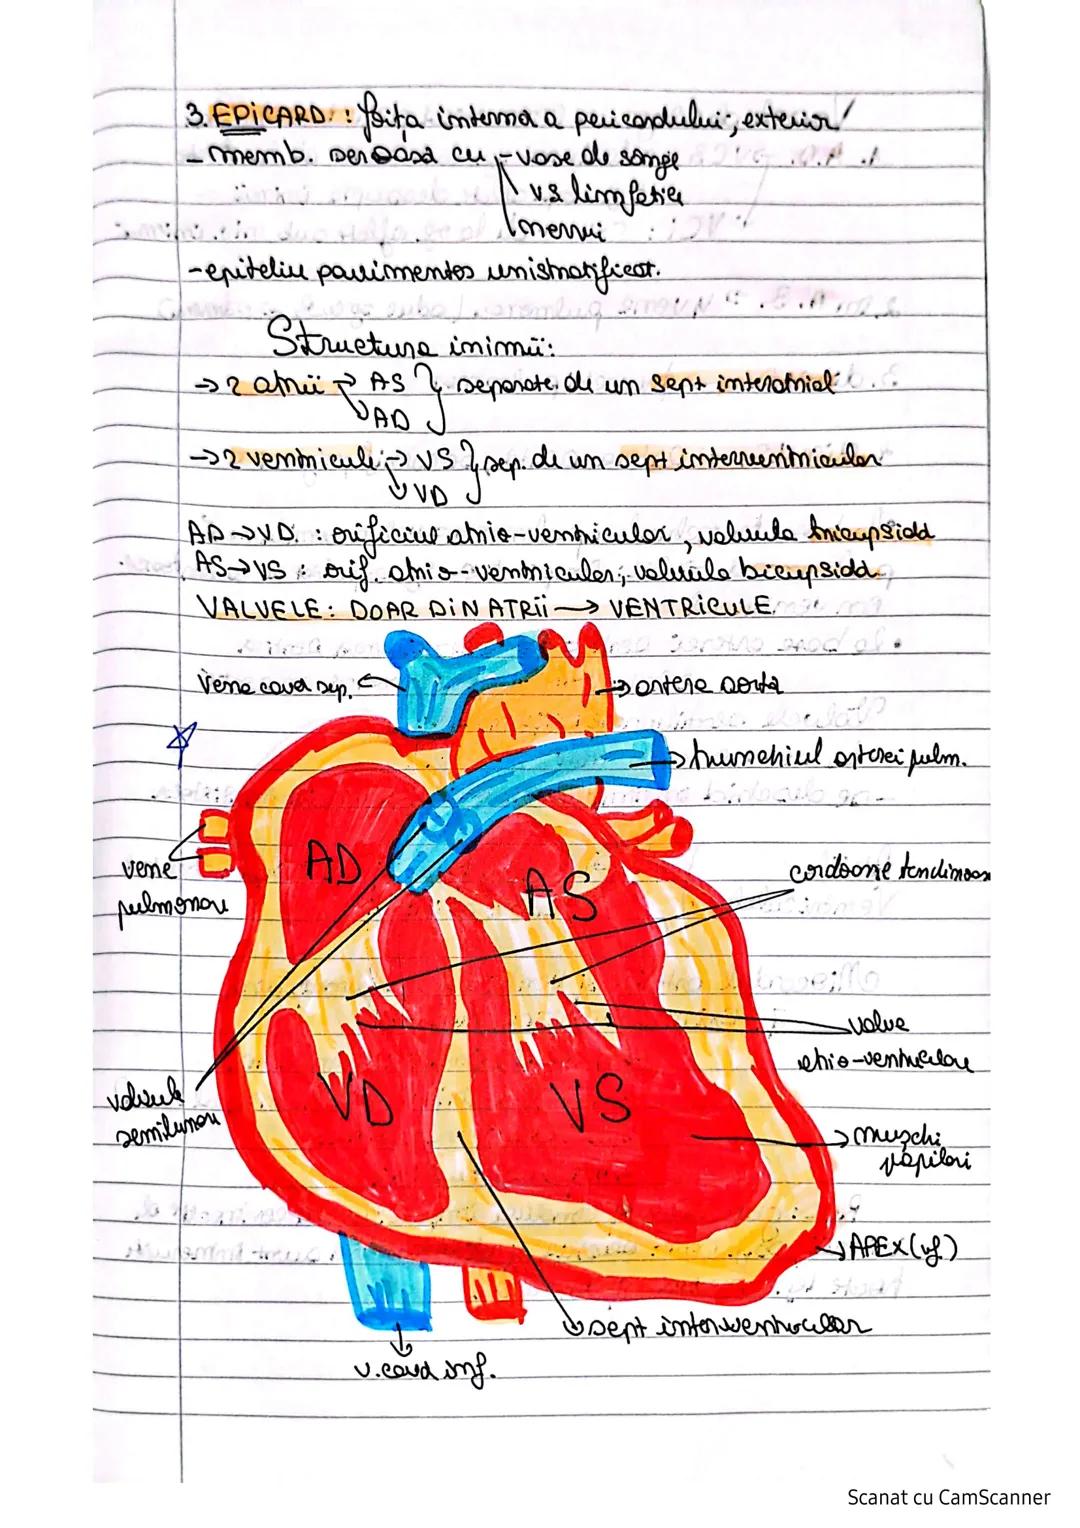 3. EPICARD: foița internă a pericardului; exterior
- memb. seroasă cu - vase de sânge
vs limfatice
nervi
- epiteliu pavimentos unistratificat.
Structura inimii:
→ 2 atrii → AS } separate de un sept interatrial
↘ AD
→ 2 ventricule → VS } sep. de un sept interventricular
↘ VD
AD → VD. : orificiul atrio-ventricular, valvula tricupsidă
AS → VS : orif. atrio-ventricular; valvula bicupsidă
VALVELE: DOAR DIN ATRII → VENTRICULE
Vena cavă sup.
artera aorta
trunchiul arterei pulm.
AD
AS
vene
pulmonare
cordoane tendinoase
valve
atrio-ventriculare
valvule
semilunare
VD
VS
mușchi
papilari
APEX (vf.)
sept interventricular
v. cavă inf.
Scanat cu CamScanner